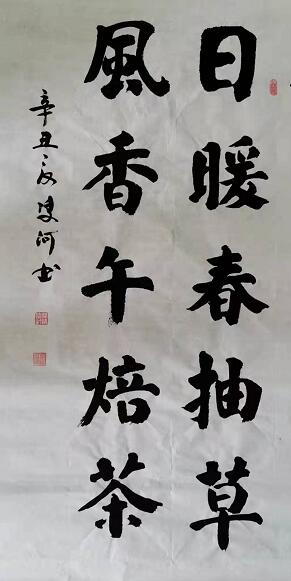 日暖春抽草
風香午焙茶
辛丑夏建河书